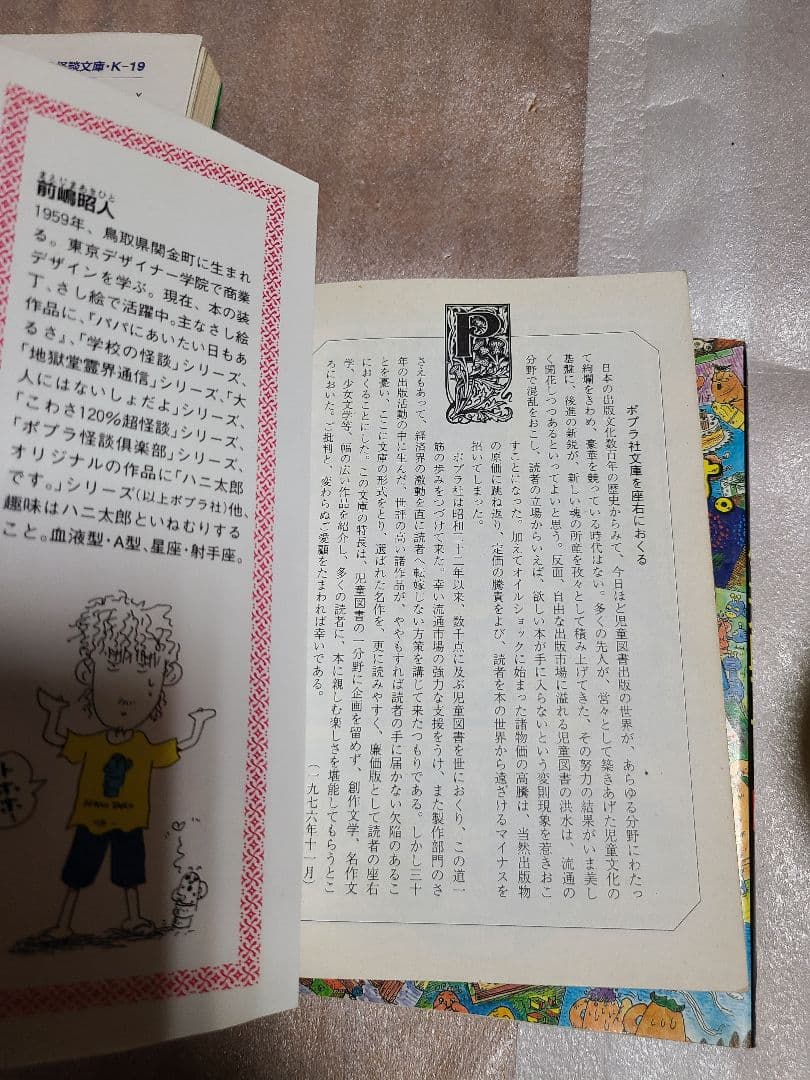 怪談文庫・K-19
まえじまあきひと
前嶋昭人
1959年、鳥取県関金町に生まれ
る。東京デザイナー学院で商業
デザインを学ぶ。現在、本の装
丁、さし絵で活躍中。主なさし絵
作品に、「パパにあいたい日もあ
るさ」、「学校の怪談」シリーズ、
「地獄堂霊界通信」シリーズ、「大
人にはないしょだよ」シリーズ、
「こわさ120%超怪談」シリーズ、
「ポプラ怪談倶楽部」シリーズ、
オリジナルの作品に「ハニ太郎
です。」シリーズ(以上ポプラ社)他、
趣味はハニ太郎といねむりする
こと。血液型・A型、星座・射手座。
トホホ
P
ポプラ社文庫を座右におくる
日本の出版文化数百年の歴史からみて、今日ほど児童図書出版の世界が、あらゆる分野にわたっ
て絢爛をきわめ、豪華を競っている時代はない。多くの先人が、営々として築きあげた児童文化の
基盤に、後進の新鋭が、新しい魂の所産を孜々として積み上げてきた、その努力の結果がいま美し
く開花しつつあるといってよいと思う。反面、自由な出版市場に溢れる児童図書の洪水は、流通の
分野で混乱をおこし、読者の立場からいえば、欲しい本が手に入らないという変則現象を惹きおこ
すことになった。加えてオイルショックに始まった諸物価の高騰は、当然出版物
の原価に跳ね返り、定価の騰貴をよび、読者を本の世界から遠ざけるマイナスを
招いてしまった。
ポプラ社は昭和二十二年以来、数千点に及ぶ児童図書を世におくり、この道一
筋の歩みをつづけて来た。幸い流通市場の強力な支援をうけ、また製作部門のさ
さえもあって、経済界の激動を直に読者へ転嫁しない方策を講じて来たつもりである。しかし三十
年の出版活動の中に生んだ、世評の高い諸作品が、ややもすれば読者の手に届かない欠陥のあるこ
とを憂い、ここに文庫の形式をとり、選ばれた名作を、更に読みやすく、廉価版として読者の座右
におくることにした。この文庫の特長は、児童図書の一分野に企画を留めず、創作文学、名作文
学、少女文学等、幅の広い作品を紹介し、多くの読者に、本に親しむ楽しさを堪能してもらうとこ
ろにおいた。ご批判と、変わらぬご愛顧をたまわれば幸いである。
(一九七六年十一月)